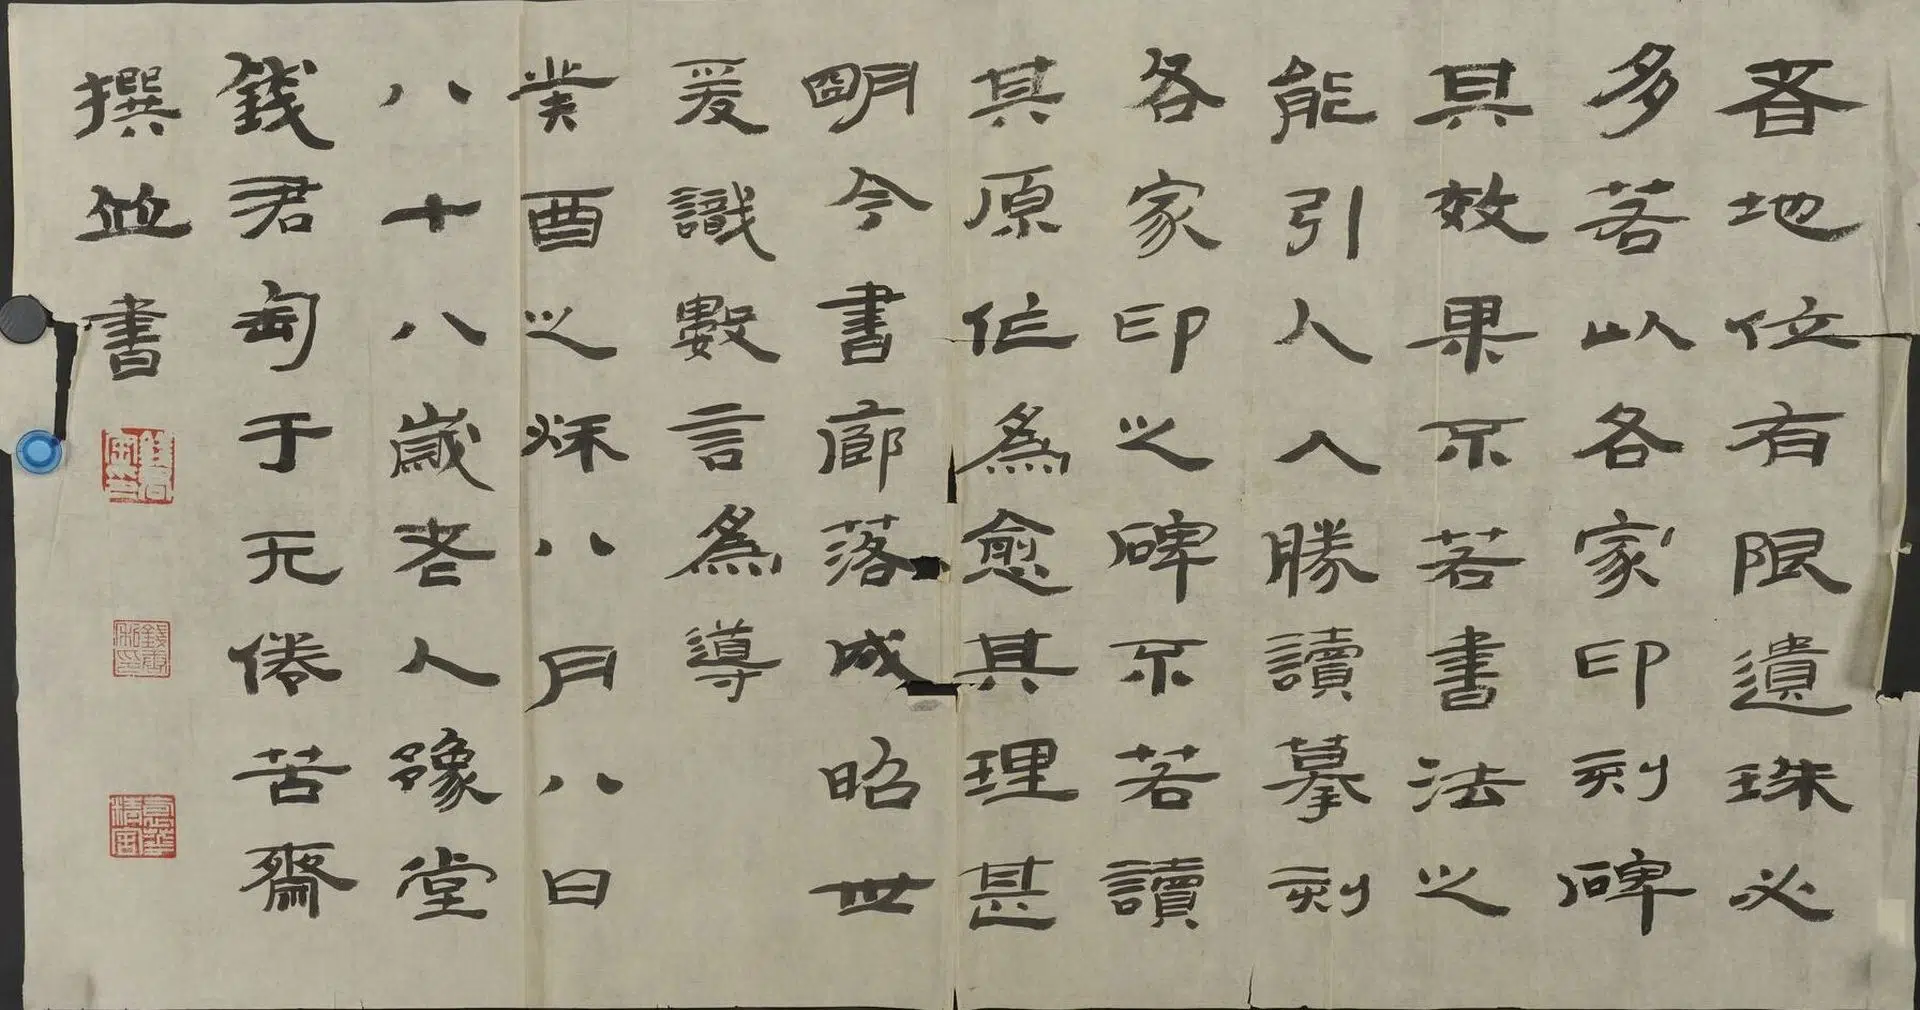 者地位有限遺珠必
多若以各家印刻碑
其效果不若書法之
能引人入勝讀摹刻
各家印之碑不若讀
其原作為愈其理甚
明今書廊落成昭世
爰識數言為導
癸酉之秌八月八日
八十八歲老人豫堂
錢君匋于无倦苦齋
撰並書